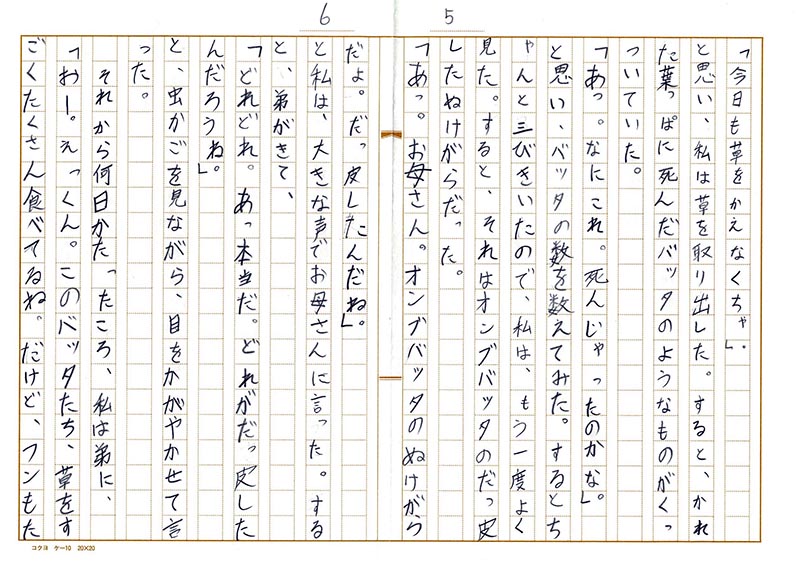 5
「今日も草をかえなくちゃ。」
と思い、私は草を取り出した。すると、かれ
た葉っぱに死んだバッタのようなものがくっ
ついていた。
「あっ。なにこれ。死んじゃったのかな」。
と思い、バッタの数を数えてみた。するとち
ゃんと三びきいたので、私は、もう一度よく
見た。すると、それはオンブバッタのだっ皮
したぬけがらだった。
「あっ。お母さん。オンブバッタのぬけがら
6
だよ。だっ皮したんだね」。
と私は、大きな声でお母さんに言った。する
と、弟がきて、
「どれどれ。あっ本当だ。どれがだっ皮した
んだろうね」。
と、虫かごを見ながら、目をかがやかせて言
った。
それから何日かたったころ、私は弟に、
「おー。えっくん。このバッタたち、草をす
ごくたくさん食べてるね。だけど、フンもた
コクヨ ケー10 20×20